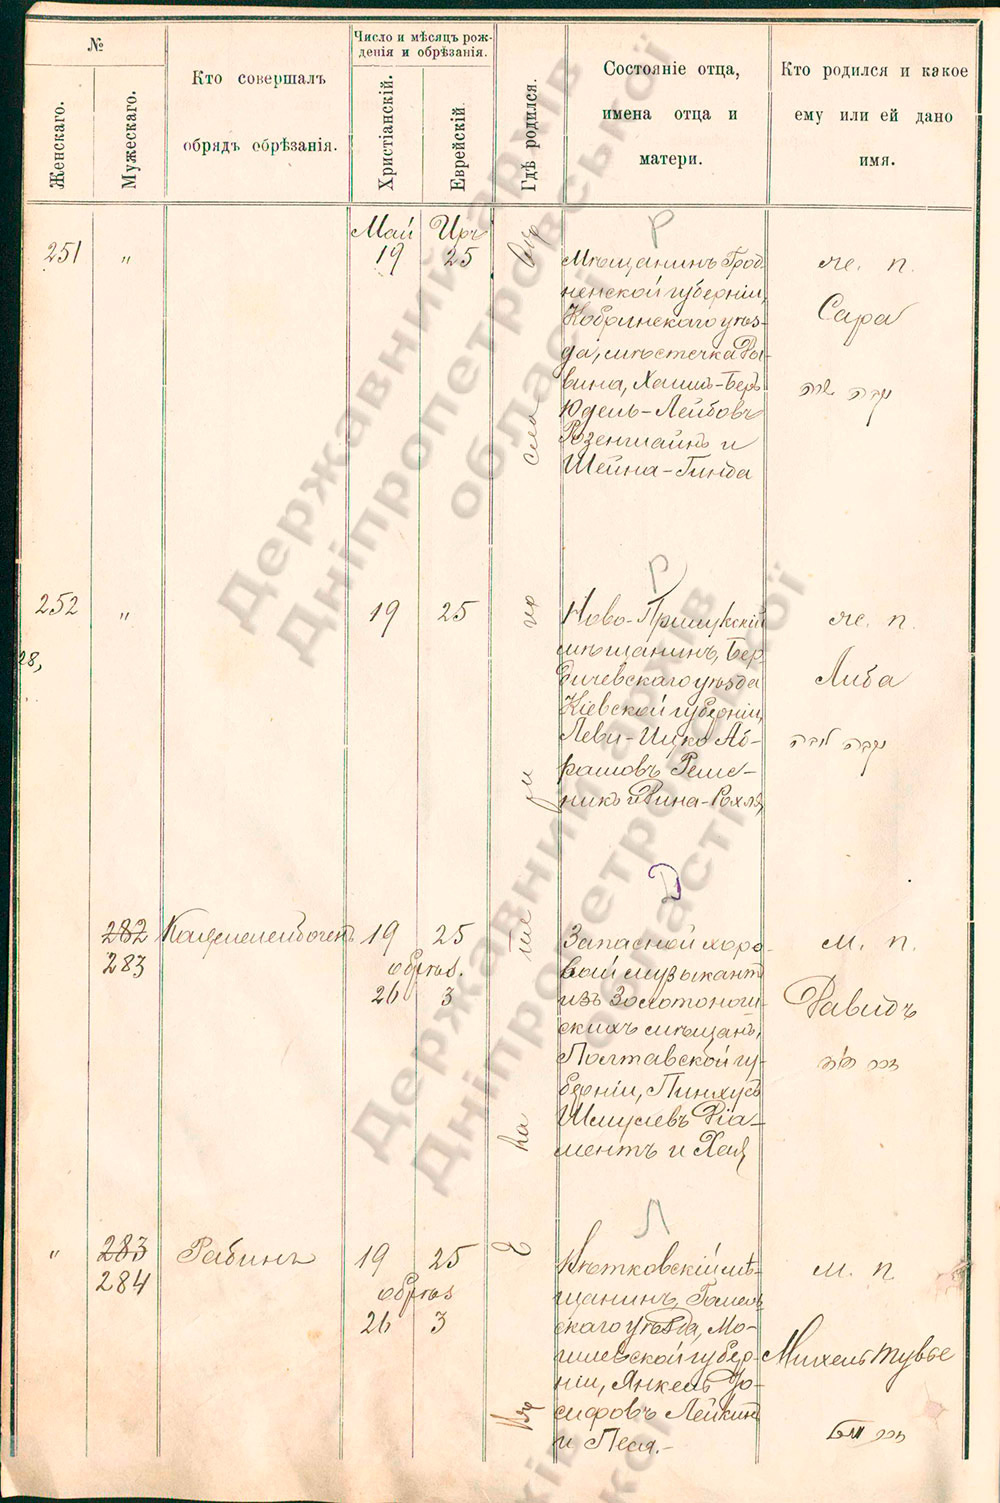 №
Женскаго.
Мужескаго.
Кто совершалъ
обрядъ обрѣзанія.
Число и мѣсяцъ рож-
денія и обрѣзанія.
Христіанскій.
Еврейскій.
Гдѣ родился.
Состояніе отца,
имена отца и
матери.
Кто родился и какое
ему или ей дано
имя.
Май Иръ
251 " 19 25
Р
Мѣщанинъ Грод
ненской губерніи,
Кобринскаго уѣз-
да, мѣстечка
Хаимъ-Беръ
Юдель-Лейбовъ
Розенштайнъ и
Шейна-Гинда
же. п.
Сара
נקבה שרה
252 " 19 25
28,
Р
Ново-Прилукскій
мѣщанинъ, Бер-
дичевскаго уѣзда
Кіевской губерніи,
Леви-Ицко Аб-
рамовъ
и Дина-Рохля
же. п.
Либа
נקבה ליבה
282
283
Каценеленбогенъ
19 25
обрѣз.
26 3
Д
Запасной хоро-
вой музыкантъ
изъ Золотонош-
скихъ мѣщанъ,
Полтавской гу-
берніи, Пинхусъ
Шмулевъ Діа-
ментъ и Хая
м. п.
Давидъ
זכר דוד
"
283
284
Рабинъ
19 25
обрѣз
26 3
Л
Вѣтковскій мѣ-
щанинъ, Гомель
скаго уѣзда, Мо-
гилевской губер-
ніи, Янкель Іо-
сифовъ Лейкинъ
и Песя.-
м. п.
Михель Тувье
זכר
Державний архів
Дніпропетровської
області
Державний архів
Дніпропетровської
області